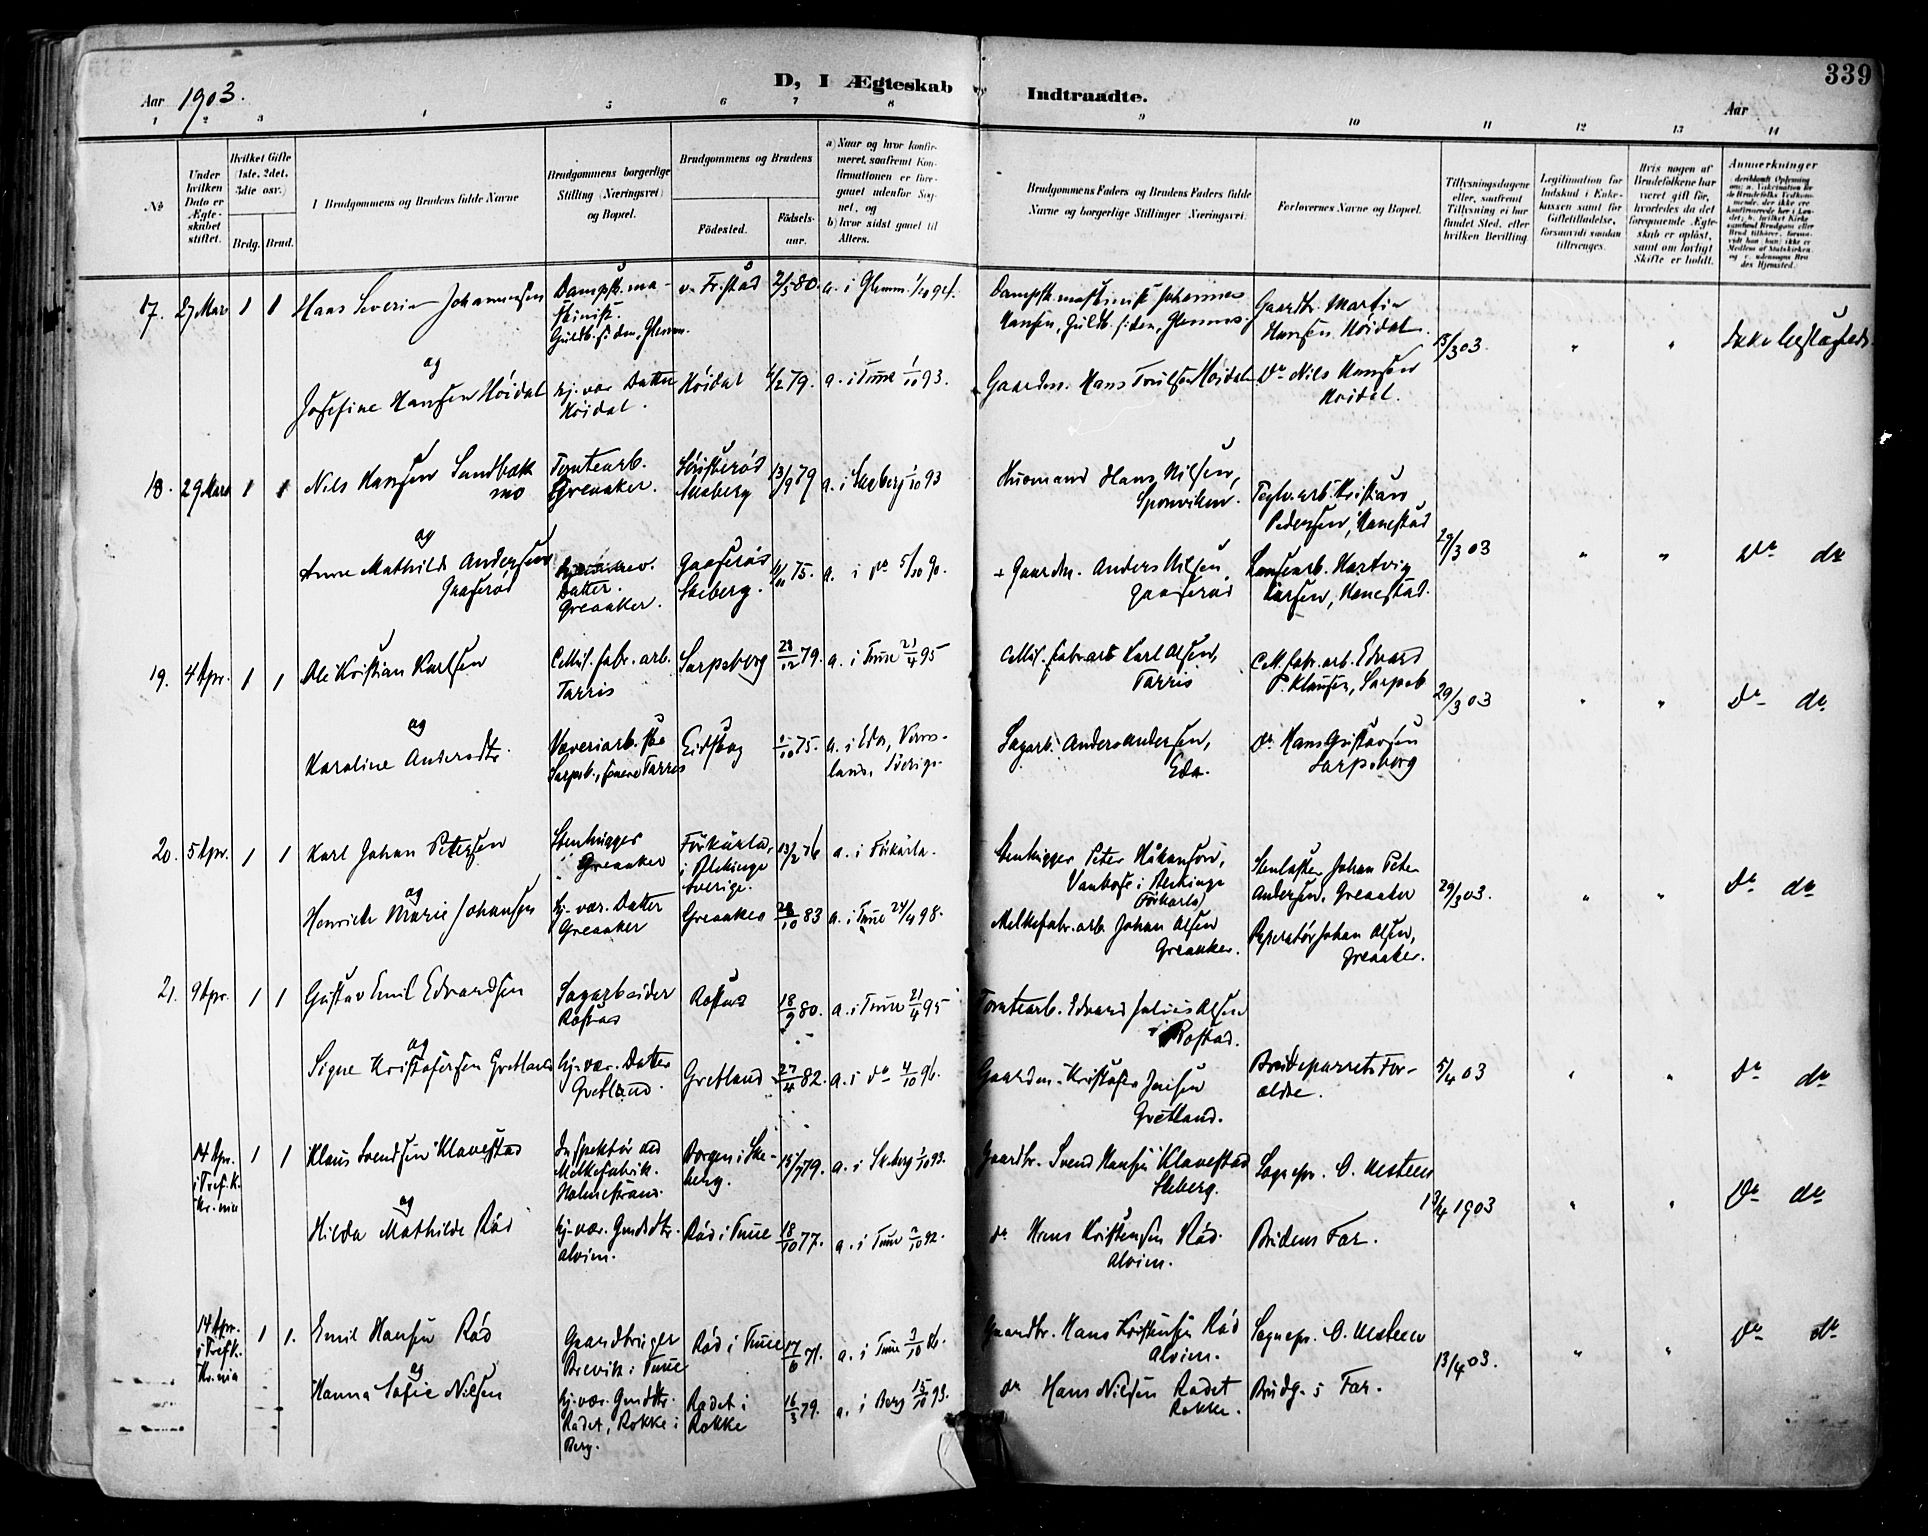 339
Aar 1903.
D, I Ægteskab
Indtraadte.
Aar
1 2 3 4 5 6 7 8 9 10 11 12 13 14
№
Under hvilken Dato er Ægteskabet stiftet.
Hvilket Gifte (1ste, 2det, 3die osv.)
Brdg. Brud.
Brudgommens og Brudens fulde Navne
Brudgommens borgerlige Stilling (Næringsvei) og Bopæl.
Brudgommens og Brudens
Fødested.
Fødselsaar.
a) Naar og hvor konfirmeret, saafremt Konfirmationen er foregaaet udenfor Sognet, og
b) hvor sidst gaaet til Alters.
Brudgommens Faders og Brudens Faders fulde Navne og borgerlige Stillinger (Næringsvei).
Forlovernes Navne og Bopæl.
Tillysningsdagene eller, saafremt Tillysning ei har fundet Sted, efter hvilken Bevilling
Legitimation for Indskud i Enkekassen samt for Giftetilladelse, forsaavidt saadan tiltrænges.
Hvis nogen af Brudefolkene har været gift før, hvorledes da det foregaaende Ægteskab er opløst, samt om lovligt Skifte er holdt.
Anmerkninger
17. 27 Mars 1 1 Hans Severin Johannesen
Dampsk.maskinist. Guldb.siden, Glemm.
v. Fr.stad 2/5 80. a. i Glemm. 1/10 94.
Dampsk.maskinist Johannes Hansen, Guldb.siden, Glemm.
Gaardbr. Martin Hansen Höidal.
15/3 03. " " Ikke beslægtede.
og
Josefine Hansen Höidal
hj. vær. Datter Höidal.
Höidal 4/2 79. a. i Tune 1/10 93.
Gaardm. Hans Truelsen Höidal
Do Nils Hansen Höidal.
18. 29 Mars 1 1 Nils Hansen Sandbæk mo
Tomtearb. Greaaker.
Skeberg 13/9 79 a. i Skeberg 1/10 93
Husmand Hans Nilsen, Sponviken.
Teglv.arb. Kristian Pedersen, Hanestad
29/3 03 " " Do do
og
Anne Mathilde Andersen Gaaserød
Datter. Greaaker.
Gaaserød Skeberg. 11/11 75. a. i do 5/10 90.
Gaardm. Anders Nilsen Gaaserød
Hartvig Larsen, Hanestad.
19. 4 Apr. 1 1 Ole Kristian Karlsen
Cellul.fabr.arb. Tarris
Sarpsborg 28/12 79. a. i Tune 21/4 95
Cellul.fabr.arb Karl Olsen, Tarris
Cell.fabr.arb. Edvard P. Klausen, Sarpsb
29/3 03 " " Do do.
og
Karoline Andersdtr.
Væveriarb.ske Sarpsb., senere Tarris
Eidskog 1/10 75. a. i Eda, Vermland, Sverige.
Sagarb. Anders Andersen, Eda.
do. Hans Gustavsen Sarpsborg
20. 5 Apr. 1 1 Karl Johan Petersen
Stenhugger Greaaker
Förkärla, i Blekinge Sverige. 13/2 76 a. i Förkärla.
Stenhugger Peter Håkanson, i Blekinge (Förkärla)
Johan Peter Andersen, Greaaker
29/3 03. " " Do do
og
Henriette Marie Johansen
hj. vær. Datter Greaaker
Greaaker 28/10 83 a. i Tune 24/4 98.
Melkefabr.arb. Johan Olsen Greaaker.
Reperatør Johan Olsen, Greaaker.
21. 9 Apr. 1 1 Gustav Emil Edvardsen
Sagarbeider Rostad
Rostad 18/9 80. a. i Tune 21/4 95
Tomtearb. Edvard Julius Olsen Rostad.
og
Signe Kristofersen Gretland
hj. vær. Datter Gretland.
Gretland 27/4 82. a. i do 4/10 96.
Gaardm. Kristofer Jensen Gretland.
Brudeparrets Forældre.
5/4 03 " " Do do
14 Apr. i Tref.k. Kr.nia 1 1 Klaus Svendsen Klavestad
Inspektør ved Melkefabrik. Holmestrand.
Borgen i Skeberg. 15/7 79. a. i Skeberg 1/10 93.
Gaardbr. Svend Hansen Klavestad Skeberg.
Sognepr. O. Nesteen
13/4 1903 " " Do do
og
Hilda Mathilde Röd
hj. vær. Gmdsdtr. Alvim.
Röd i Tune 18/10 77. a. i Tune 2/10 92.
do Hans Kristensen Röd. Alvim.
Brudens Far.
14 Apr. i Tref.k. Kr.nia 1 1. Emil Hansen Röd
Gaardbruger Brevik i Tune
Röd i Tune 17/6 71. a. i Tune 3/10 86.
Gaardbr. Hans Kristensen Röd Alvim.
Sognepr. O. Nesteen
13/4 03. " " Do do
og
Hanna Sofie Nilsen
hj. vær. Gmdsdtr. Radet, Rokke i Berg.
Radet i Rokke 16/3 79. a. i Berg 15/10 93.
do Hans Nilsen Radet Rokke.
Brudg.s Far.